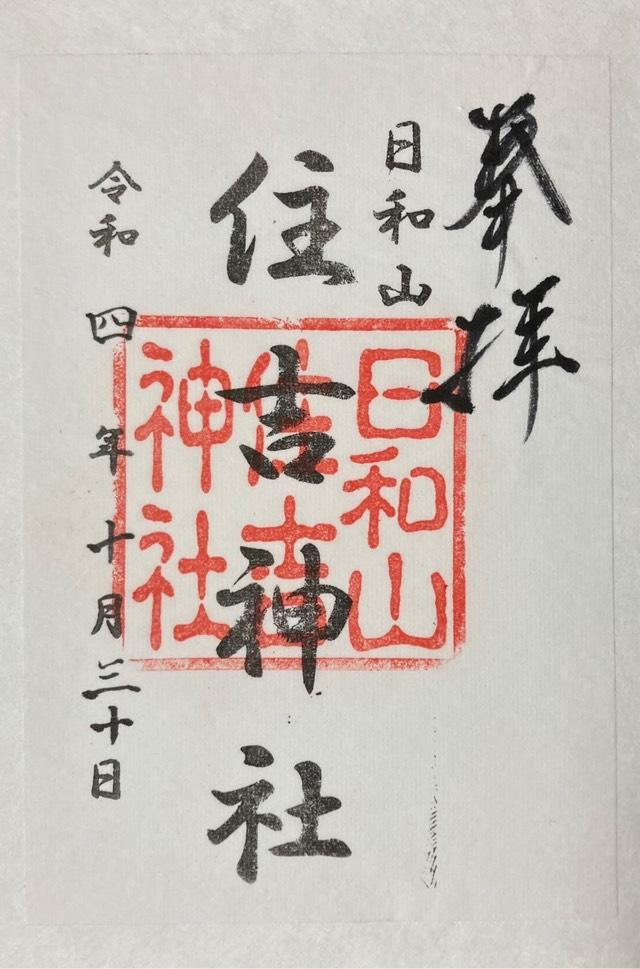 奉拝
日和山
住吉神社
日和山
住吉
神社
令和四年十月三十日